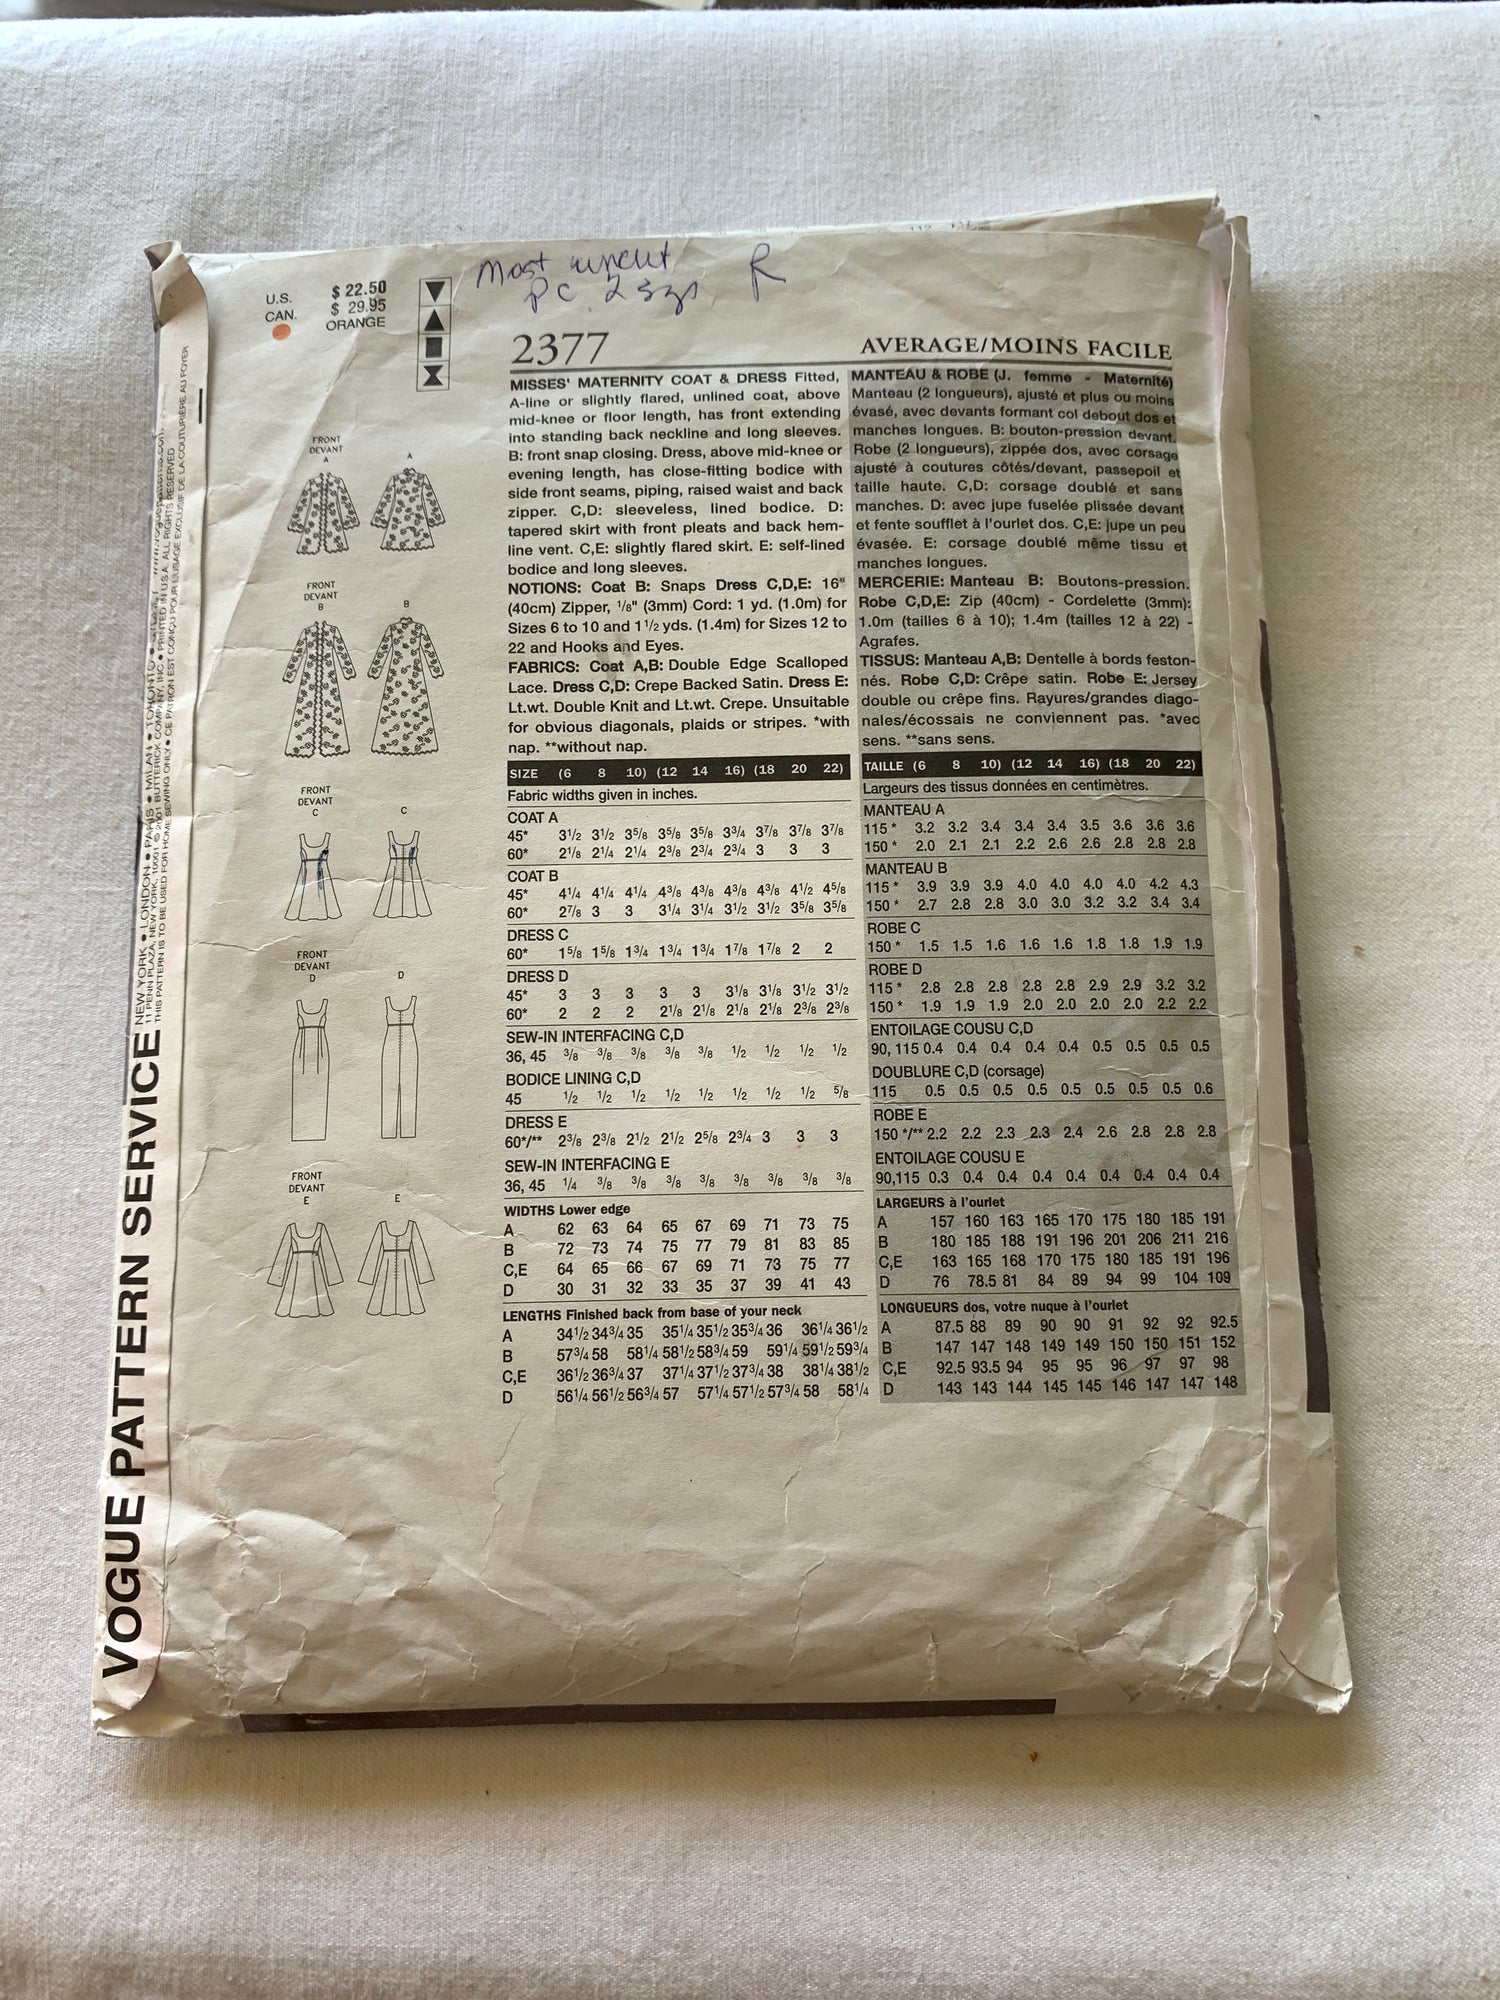 Most uncut R
pc 2 szs
U.S. $ 22.50
CAN. $ 29.95
ORANGE
2377
AVERAGE/MOINS FACILE
FRONT
DEVANT
A
A
FRONT
DEVANT
B
B
FRONT
DEVANT
C
C
FRONT
DEVANT
D
D
FRONT
DEVANT
E
E
MISSES' MATERNITY COAT & DRESS Fitted,
A-line or slightly flared, unlined coat, above
mid-knee or floor length, has front extending
into standing back neckline and long sleeves.
B: front snap closing. Dress, above mid-knee or
evening length, has close-fitting bodice with
side front seams, piping, raised waist and back
zipper. C,D: sleeveless, lined bodice. D:
tapered skirt with front pleats and back hem-
line vent. C,E: slightly flared skirt. E: self-lined
bodice and long sleeves.
NOTIONS: Coat B: Snaps Dress C,D,E: 16"
(40cm) Zipper, 1/8" (3mm) Cord: 1 yd. (1.0m) for
Sizes 6 to 10 and 1 1/2 yds. (1.4m) for Sizes 12 to
22 and Hooks and Eyes.
FABRICS: Coat A,B: Double Edge Scalloped
Lace. Dress C,D: Crepe Backed Satin. Dress E:
Lt.wt. Double Knit and Lt.wt. Crepe. Unsuitable
for obvious diagonals, plaids or stripes. *with
nap. **without nap.
SIZE (6 8 10) (12 14 16) (18 20 22)
Fabric widths given in inches.
COAT A
45* 3 1/2 3 1/2 3 5/8 3 5/8 3 5/8 3 3/4 3 7/8 3 7/8 3 7/8
60* 2 1/8 2 1/4 2 1/4 2 3/8 2 3/4 2 3/4 3 3 3
COAT B
45* 4 1/4 4 1/4 4 1/4 4 3/8 4 3/8 4 3/8 4 3/8 4 1/2 4 5/8
60* 2 7/8 3 3 3 1/4 3 1/4 3 1/2 3 1/2 3 5/8 3 5/8
DRESS C
60* 1 5/8 1 5/8 1 3/4 1 3/4 1 3/4 1 7/8 1 7/8 2 2
DRESS D
45* 3 3 3 3 3 3 1/8 3 1/8 3 1/2 3 1/2
60* 2 2 2 2 1/8 2 1/8 2 1/8 2 1/8 2 3/8 2 3/8
SEW-IN INTERFACING C,D
36, 45 3/8 3/8 3/8 3/8 3/8 1/2 1/2 1/2 1/2
BODICE LINING C,D
45 1/2 1/2 1/2 1/2 1/2 1/2 1/2 1/2 5/8
DRESS E
60*/** 2 3/8 2 3/8 2 1/2 2 1/2 2 5/8 2 3/4 3 3 3
SEW-IN INTERFACING E
36, 45 1/4 3/8 3/8 3/8 3/8 3/8 3/8 3/8 3/8
WIDTHS Lower edge
A 62 63 64 65 67 69 71 73 75
B 72 73 74 75 77 79 81 83 85
C,E 64 65 66 67 69 71 73 75 77
D 30 31 32 33 35 37 39 41 43
LENGTHS Finished back from base of your neck
A 34 1/2 34 3/4 35 35 1/4 35 1/2 35 3/4 36 36 1/4 36 1/2
B 57 3/4 58 58 1/4 58 1/2 58 3/4 59 59 1/4 59 1/2 59 3/4
C,E 36 1/2 36 3/4 37 37 1/4 37 1/2 37 3/4 38 38 1/4 38 1/2
D 56 1/4 56 1/2 56 3/4 57 57 1/4 57 1/2 57 3/4 58 58 1/4
MANTEAU & ROBE (J. femme - Maternité)
Manteau (2 longueurs), ajusté et plus ou moins
évasé, avec devants formant col debout dos et
manches longues. B: bouton-pression devant.
Robe (2 longueurs), zippée dos, avec corsage
ajusté à coutures côtés/devant, passepoil et
taille haute. C,D: corsage doublé et sans
manches. D: avec jupe fuselée plissée devant
et fente soufflet à l'ourlet dos. C,E: jupe un peu
évasée. E: corsage doublé même tissu et
manches longues.
MERCERIE: Manteau B: Boutons-pression.
Robe C,D,E: Zip (40cm) - Cordelette (3mm):
1.0m (tailles 6 à 10); 1.4m (tailles 12 à 22) -
Agrafes.
TISSUS: Manteau A,B: Dentelle à bords feston-
nés. Robe C,D: Crêpe satin. Robe E: Jersey
double ou crêpe fins. Rayures/grandes diago-
nales/écossais ne conviennent pas. *avec
sens. **sans sens.
TAILLE (6 8 10) (12 14 16) (18 20 22)
Largeurs des tissus données en centimètres.
MANTEAU A
115 * 3.2 3.2 3.4 3.4 3.4 3.5 3.6 3.6 3.6
150 * 2.0 2.1 2.1 2.2 2.6 2.6 2.8 2.8 2.8
MANTEAU B
115 * 3.9 3.9 3.9 4.0 4.0 4.0 4.0 4.2 4.3
150 * 2.7 2.8 2.8 3.0 3.0 3.2 3.2 3.4 3.4
ROBE C
150 * 1.5 1.5 1.6 1.6 1.6 1.8 1.8 1.9 1.9
ROBE D
115 * 2.8 2.8 2.8 2.8 2.8 2.9 2.9 3.2 3.2
150 * 1.9 1.9 1.9 2.0 2.0 2.0 2.0 2.2 2.2
ENTOILAGE COUSU C,D
90, 115 0.4 0.4 0.4 0.4 0.4 0.5 0.5 0.5 0.5
DOUBLURE C,D (corsage)
115 0.5 0.5 0.5 0.5 0.5 0.5 0.5 0.5 0.6
ROBE E
150 */** 2.2 2.2 2.3 2.3 2.4 2.6 2.8 2.8 2.8
ENTOILAGE COUSU E
90,115 0.3 0.4 0.4 0.4 0.4 0.4 0.4 0.4 0.4
LARGEURS à l'ourlet
A 157 160 163 165 170 175 180 185 191
B 180 185 188 191 196 201 206 211 216
C,E 163 165 168 170 175 180 185 191 196
D 76 78.5 81 84 89 94 99 104 109
LONGUEURS dos, votre nuque à l'ourlet
A 87.5 88 89 90 90 91 92 92 92.5
B 147 147 148 149 149 150 150 151 152
C,E 92.5 93.5 94 95 95 96 97 97 98
D 143 143 144 145 145 146 147 147 148
VOGUE PATTERN SERVICE NEW YORK • LONDON • PARIS • MILAN • TORONTO •
11 PENN PLAZA, NEW YORK, NY 10001 © 2001 BUTTERICK COMPANY, INC. • PRINTED IN U.S.A. ALL RIGHTS RESERVED
THIS PATTERN IS TO BE USED FOR HOME SEWING ONLY • CE PATRON EST CONÇU POUR L'USAGE EXCLUSIF DE LA COUTURIÈRE AU FOYER